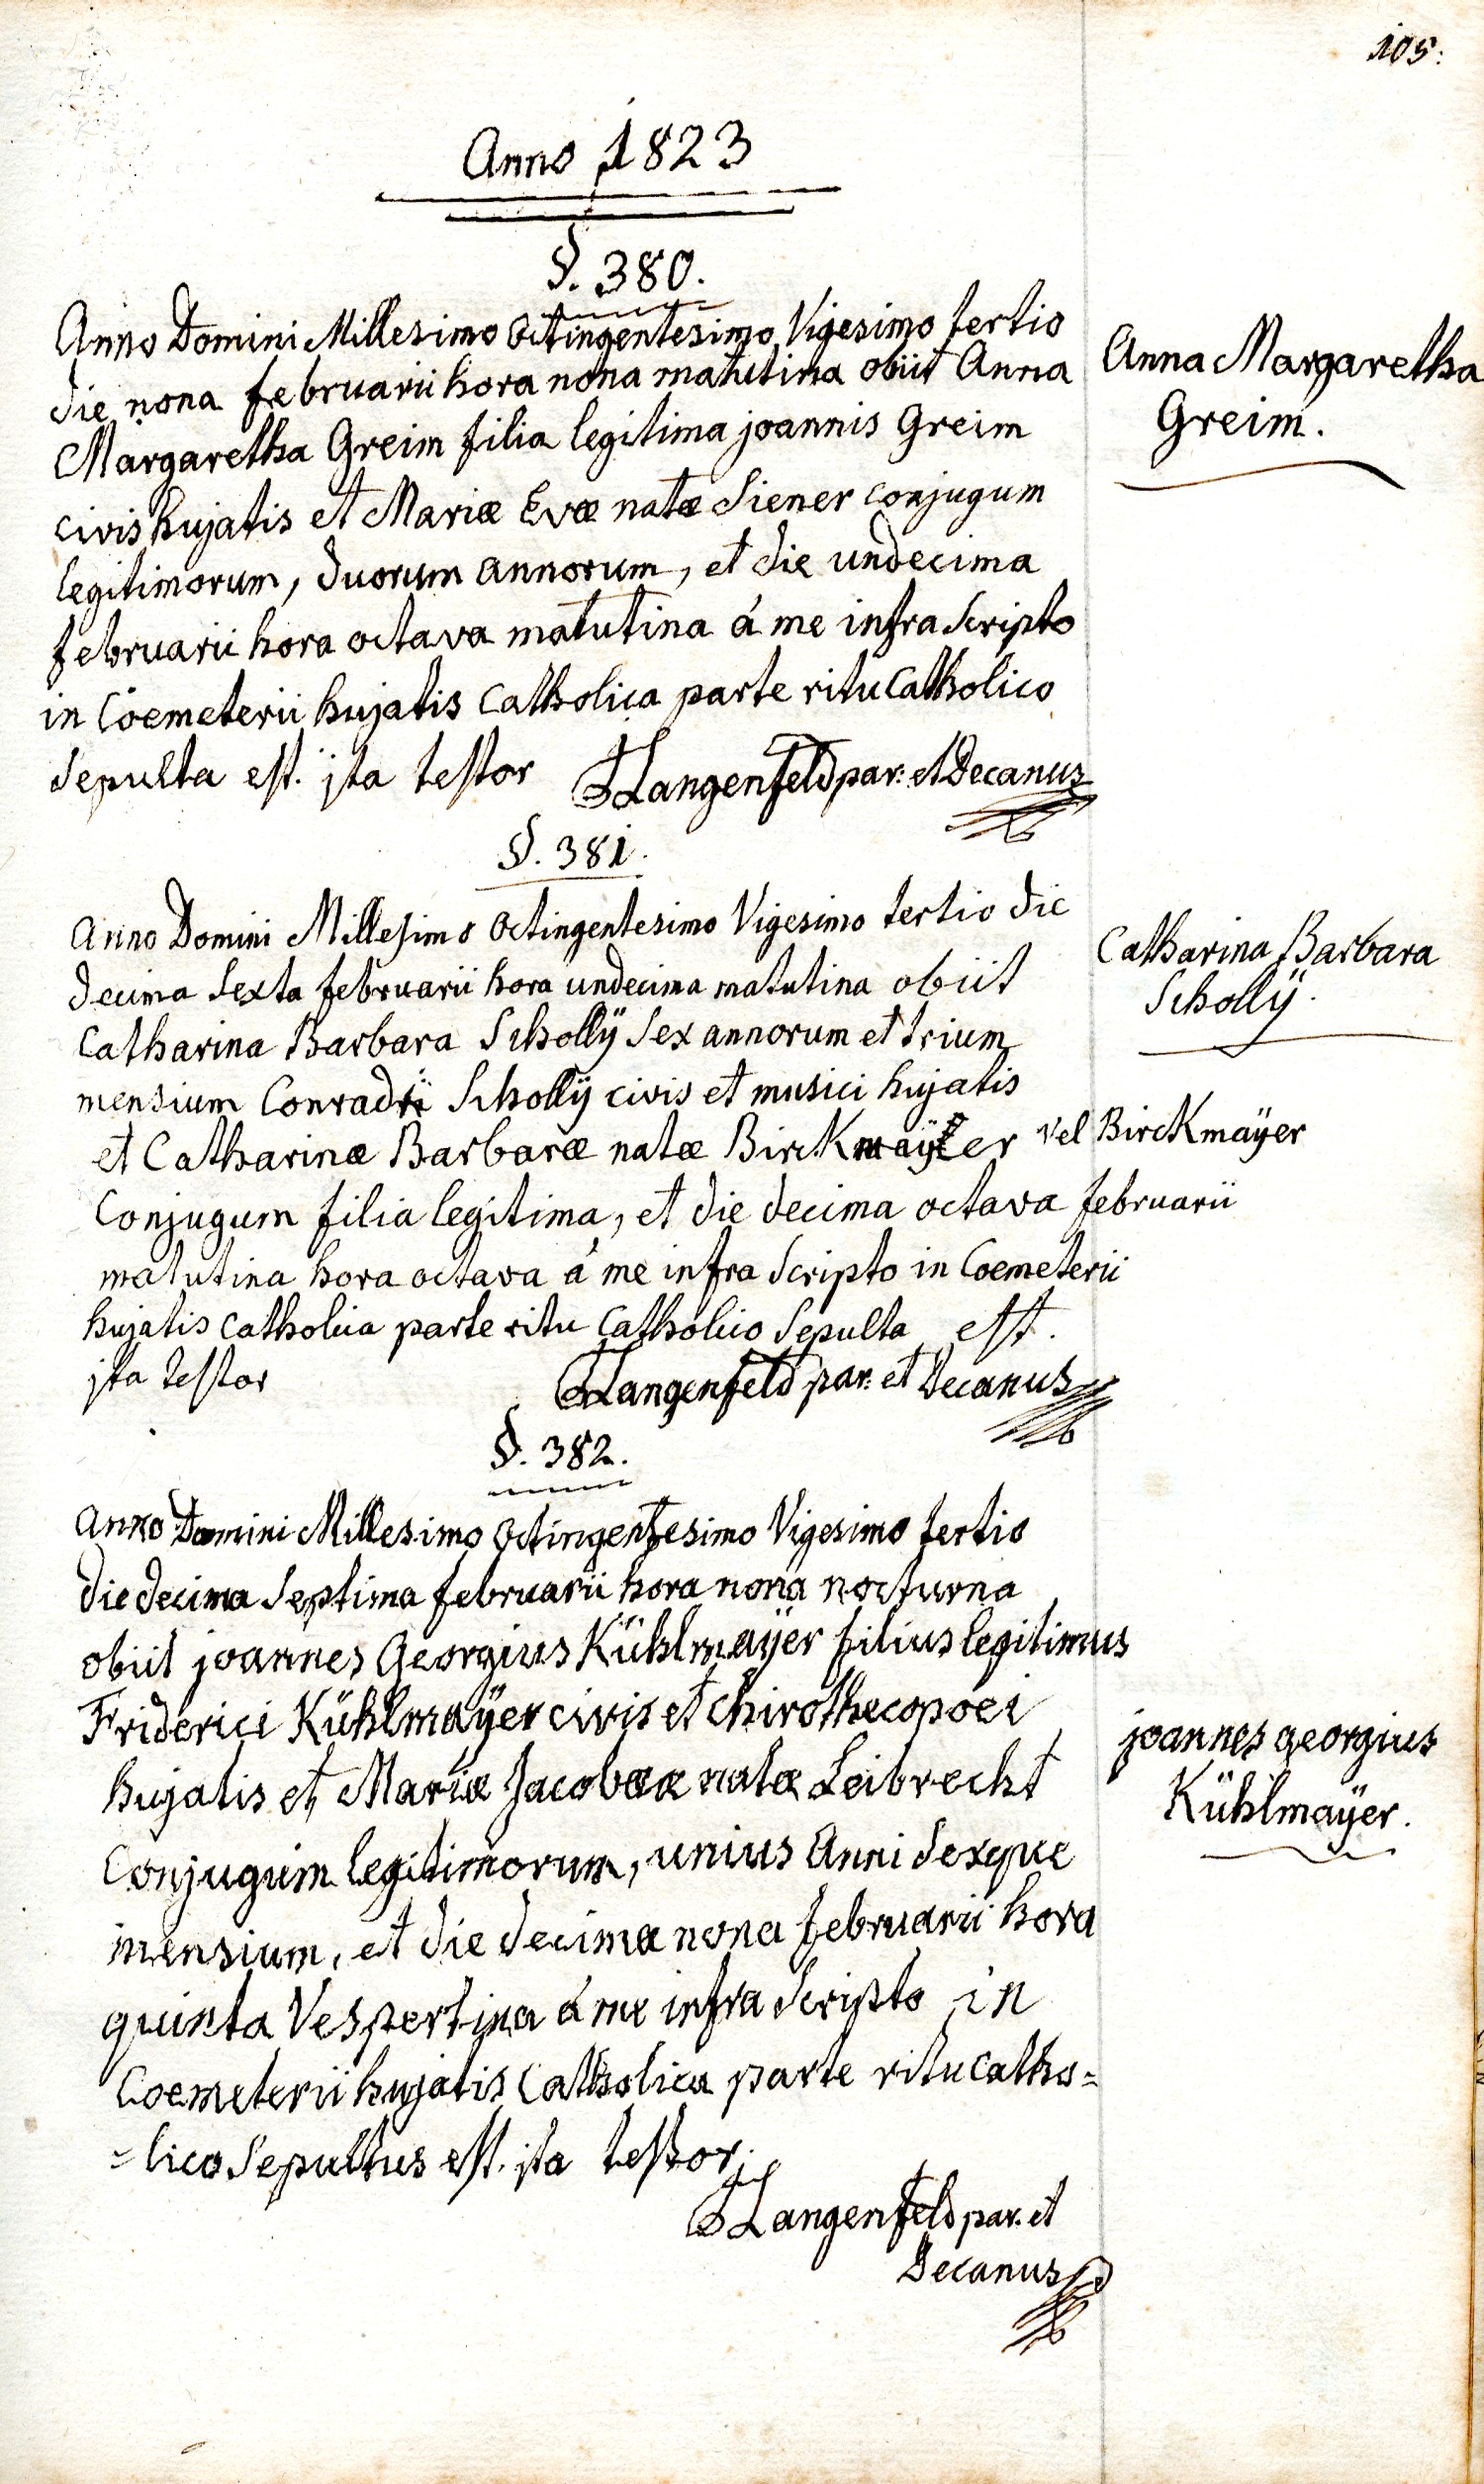 105:
Anno 1823
§. 380.
Anno Domini Millesimo Octingentesimo Vigesimo tertio
die nona februarii hora nona matutina obiit Anna
Margaretha Greim filia legitima joannis Greim
civis hujatis et Mariæ Evæ natæ Siener conjugum
legitimorum, duorum annorum, et die undecima
februarii hora octava matutina á me infra scripto
in Coemeterii hujatis Catholica parte ritu Catholico
Sepulta est. jta testor Langenfeld par: et Decanus
Anna Margaretha
Greim.
§. 381.
Anno Domini Millesimo Octingentesimo Vigesimo tertio die
decima Sexta februarii hora undecima matutina obiit
Catharina Barbara Schollÿ Sex annorum et trium
mensium Conradi Schollÿ civis et musici hujatis
et Catharinæ Barbaræ natæ Birckmaÿer vel Birckmaÿer
Conjugum filia legitima, et die decima octava februarii
matutina hora octava á me infra Scripto in Coemeterii
hujatis Catholica parte ritu Catholico Sepulta est.
jta testor Langenfeld par: et Decanus
Catharina Barbara
Schollÿ.
§. 382.
Anno Domini Millesimo Octingentesimo Vigesimo tertio
die decima Septima februarii hora nona nocturna
obiit joannes Georgius Kühlmaÿer filius legitimus
Friderici Kühlmaÿer civis et chirothecopoei
hujatis et Mariæ Jacobææ natæ Leibrecht
Conjugum legitimorum, unius Anni Sexque
mensium, et die decima nona februarii hora
quinta Vespertina á me infra Scripto in
Coemeterii hujatis Catholica parte ritu Catho=
=lico Sepultus est. jta testor.
Langenfeld par: et
Decanus
joannes georgius
Kühlmaÿer.